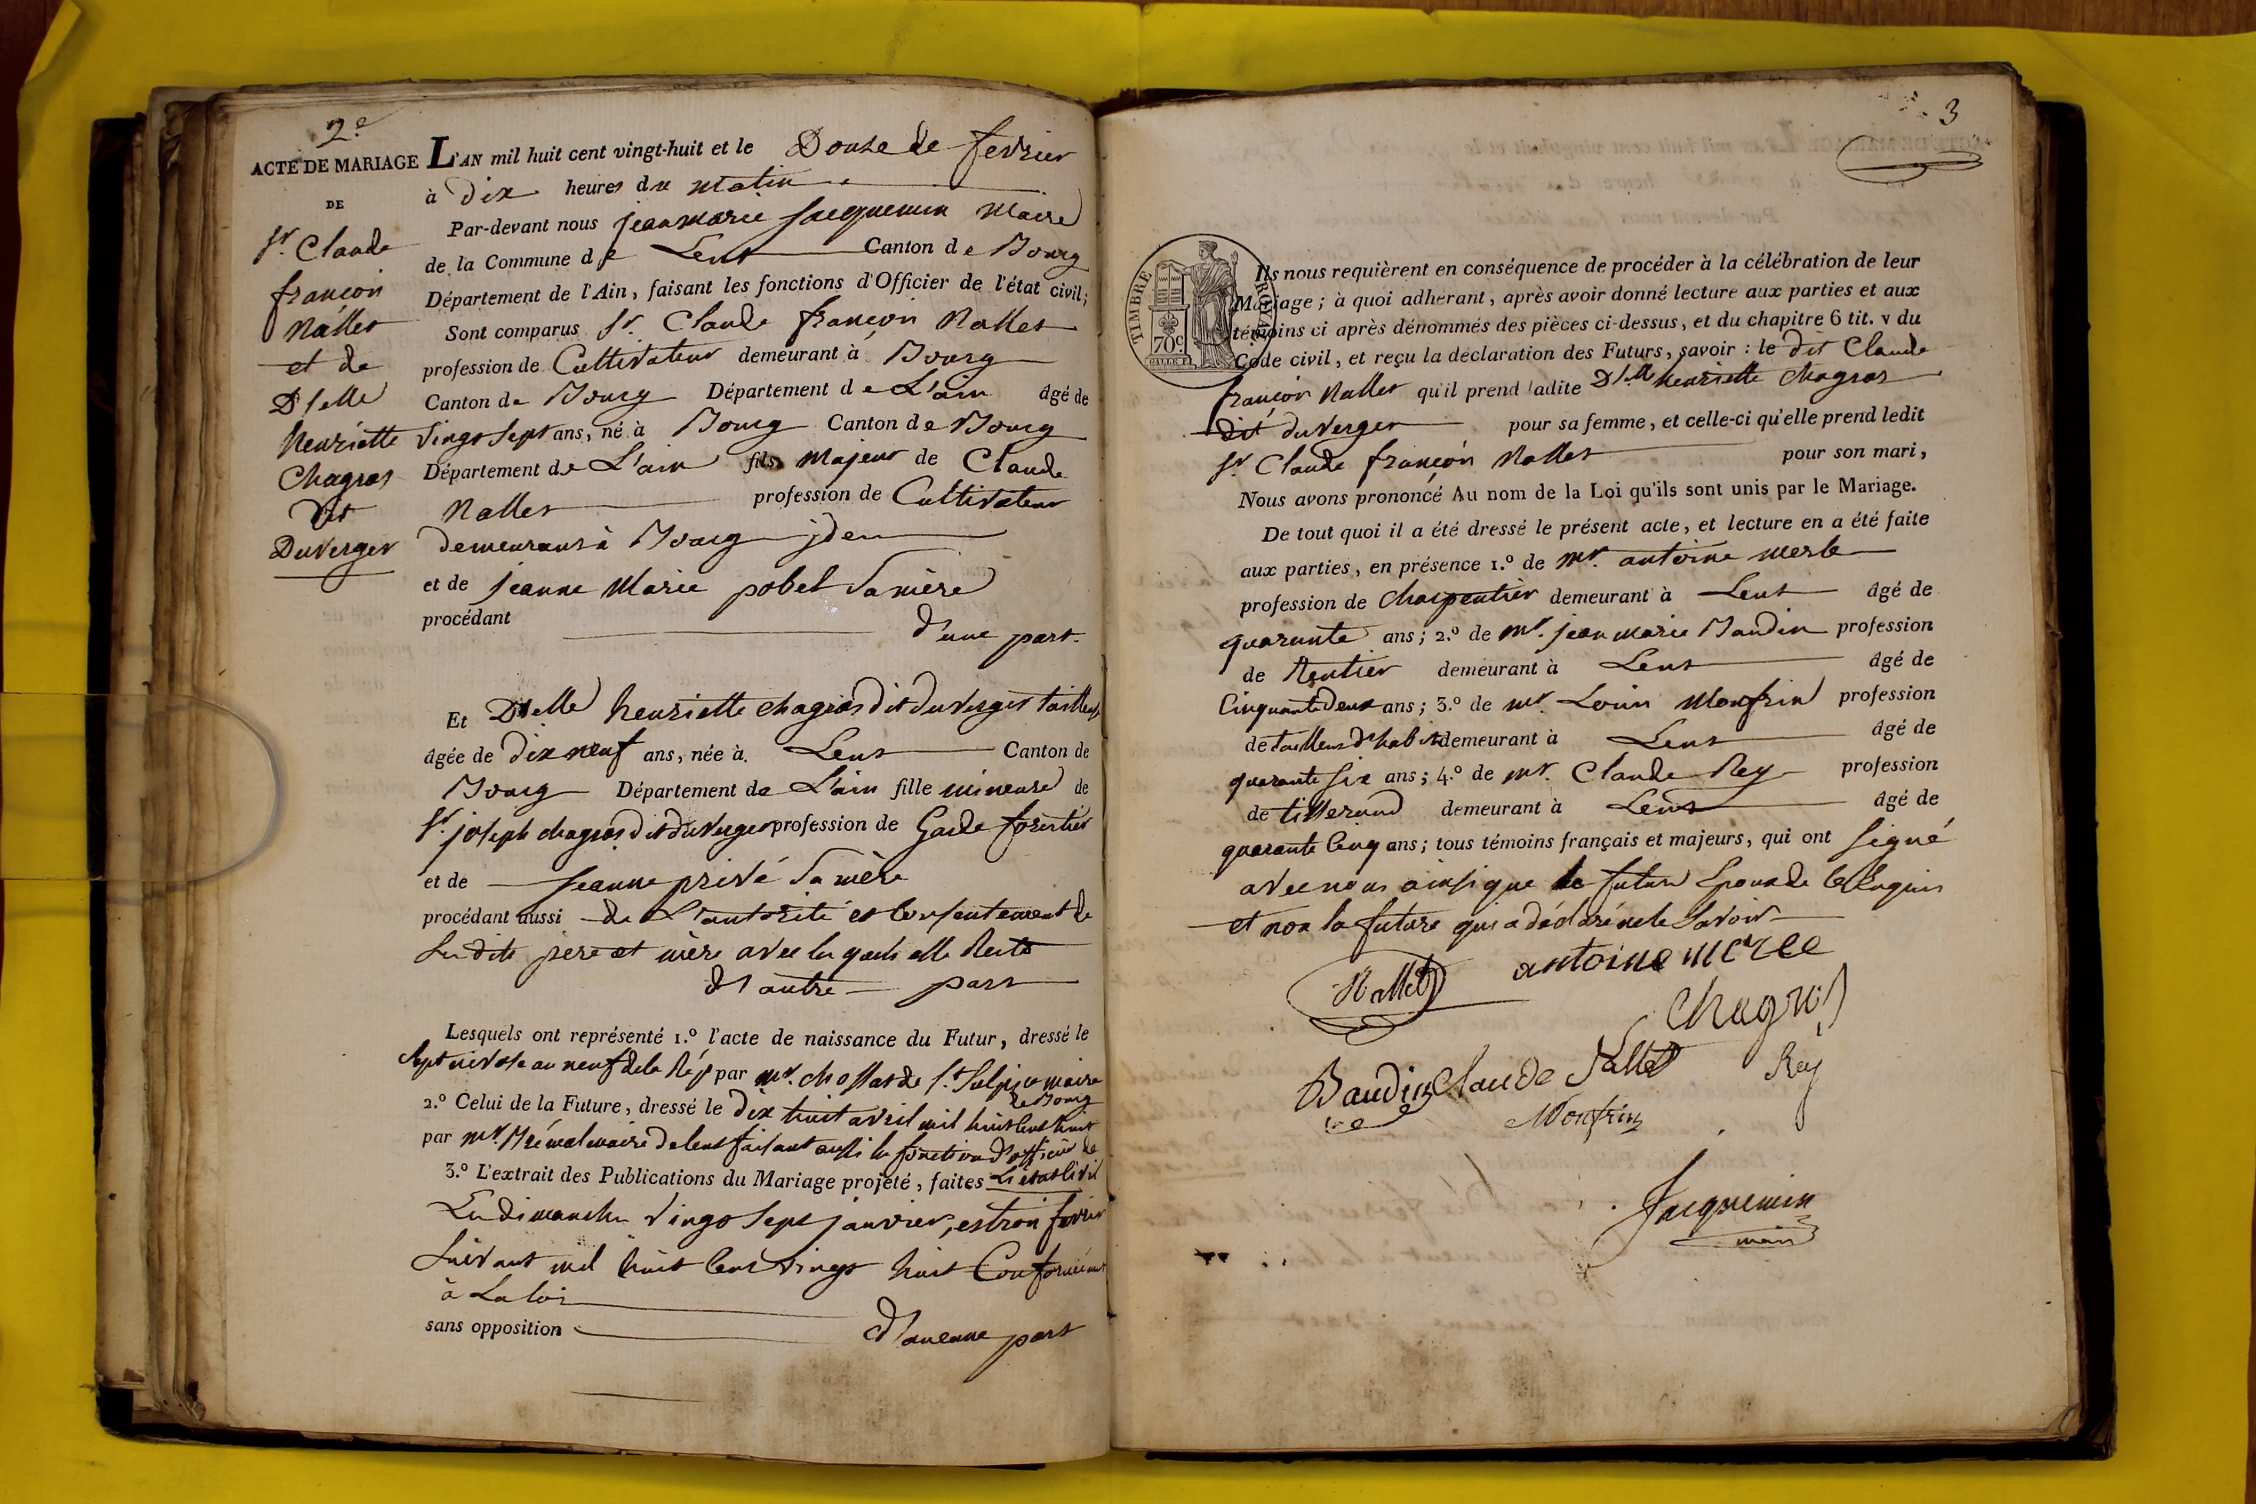 2.e
ACTE DE MARIAGE
DE
Sr. Claude
françois
Nallet
et de
Dlelle
henriette
Chagros
dit
Duverger
L'AN mil huit cent vingt-huit et le Douze de fevrier
à dix heures du matin
Par-devant nous jean marie Jacquemin Maire
de la Commune de Lent Canton de Bourg
Département de l'Ain, faisant les fonctions d'Officier de l'état civil;
Sont comparus Sr. Claude françois Nallet
profession de Cultivateur demeurant à Bourg
Canton de Bourg Département de L'ain âgé de
vingt sept ans, né à Bourg Canton de Bourg
Département de L'ain fils majeur de Claude
Nallet profession de Cultivateur
demeurant à Bourg
et de jeanne Marie pobel Sa mère
procédant d'une part.
Et Dlelle henriette chagros dit duverger tailleuse
âgée de dix neuf ans, née à Lent Canton de
Bourg Département de L'ain fille mineure de
Sr. joseph chagros dit duverger profession de Garde forestier
et de jeanne privé Sa mère
procédant aussi de L'autorité et Consentement de
Ses dits pere et mère avec les quels elle Reste
d'autre part
Lesquels ont représenté 1.º l'acte de naissance du Futur, dressé le
Sept nivose an neuf de la Rép par mr. chossat de St. Sulpice maire
de Bourg
2.º Celui de la Future, dressé le dix huit avril mil huit Cent huit
par mr. Brémal maire de Lent faisant aussi les fonctions d'officier de
3.º L'extrait des Publications du Mariage projeté, faites L'état Civil
Les dimanches vingt Sept janvier, et trois fevrier
Suivant mil huit Cent vingt huit Conformément
à La loi
sans opposition d'aucune part
3
TIMBRE ROYAL
70c
Ils nous requièrent en conséquence de procéder à la célébration de leur
Mariage; à quoi adhérant, après avoir donné lecture aux parties et aux
témoins ci après dénommés des pièces ci-dessus, et du chapitre 6 tit. v du
Code civil, et reçu la déclaration des Futurs, savoir: le dit Claude
françois Nallet qu'il prend ladite Dlelle henriette Chagros
dit duverger pour sa femme, et celle-ci qu'elle prend ledit
Sr. Claude françois Nallet pour son mari,
Nous avons prononcé Au nom de la Loi qu'ils sont unis par le Mariage.
De tout quoi il a été dressé le présent acte, et lecture en a été faite
aux parties, en présence 1.º de mr. antoine merle
profession de charpentier demeurant à Lent âgé de
quarante ans; 2.º de mr. jean marie Baudin profession
de Rentier demeurant à Lent âgé de
Cinquante deux ans; 3.º de mr. Louis Monfrin profession
de tailleur d'habit demeurant à Lent âgé de
quarante Six ans; 4.º de mr. Claude Rey profession
de tisserand demeurant à Lent âgé de
quarante Cinq ans; tous témoins français et majeurs, qui ont Signé
avec nous ainsi que le futur Epoux de Ce Enquis
et non la future qui a déclaré ne le Savoir
Nallet antoine merle
Chagros
Baudin Claude Nallet Rey
Monfrin
Jacquemin
maire